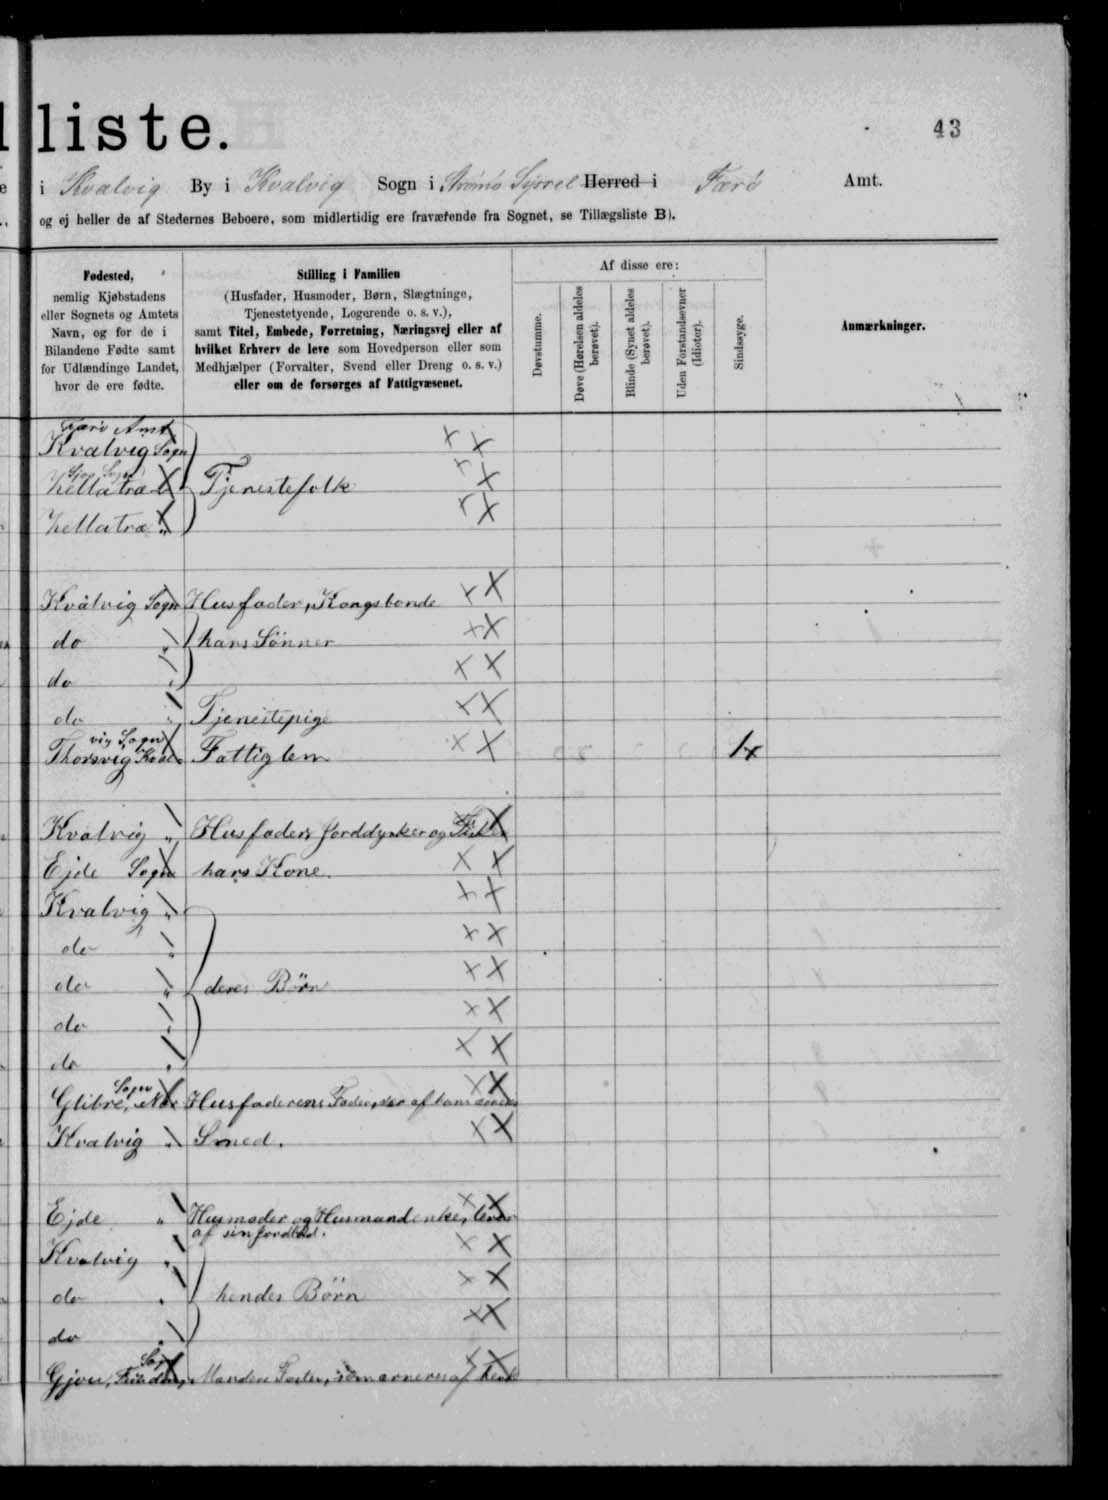 liste.
43
i Kvalvig By i Kvalvig Sogn i Strømø Syssel Herred i Færø Amt.
og ej heller de af Stedernes Beboere, som midlertidig ere fraværende fra Sognet, se Tillægsliste B).
Fødested,
nemlig Kjøbstadens
eller Sognets og Amtets
Navn, og for de i
Bilandene Fødte samt
for Udlændinge Landet,
hvor de ere fødte.
Stilling i Familien
(Husfader, Husmoder, Børn, Slægtninge,
Tjenestetyende, Logerende o. s. v.),
samt Titel, Embede, Forretning, Næringsvej eller af
hvilket Erhverv de leve som Hovedperson eller som
Medhjælper (Forvalter, Svend eller Dreng o. s. v.)
eller om de forsørges af Fattigvæsenet.
Af disse ere:
Døvstumme.
Døve (Hørelsen aldeles
berøvet).
Blinde (Synet aldeles
berøvet).
Uden Forstandsevner
(Idioter).
Sindssyge.
Anmærkninger.
Færø Amt
Kvalvig Sogn
Sogn
Tjenestefolk
Kvalvig Sogn Husfader, Kongsbonde
do " hans Sönner
do "
do " Tjenestepige
vig Sogn
Thorsvig Fattiglem 1
Kvalvig " Husfader, Jorddyrker og Fisker
Ejde Sogn hans Kone.
Kvalvig "
do "
do " deres Börn
do "
do "
Sogn
Husfaderens Fader,
Kvalvig " Smed.
Ejde " Husmoder og Husmandenke, lever
af sin Jordlod.
Kvalvig "
do " hendes Börn
do "
Sogn
Gjov,